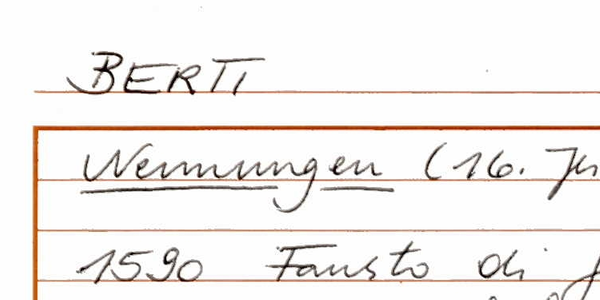 BERTI
Nennungen (16.
1590 Fausto di